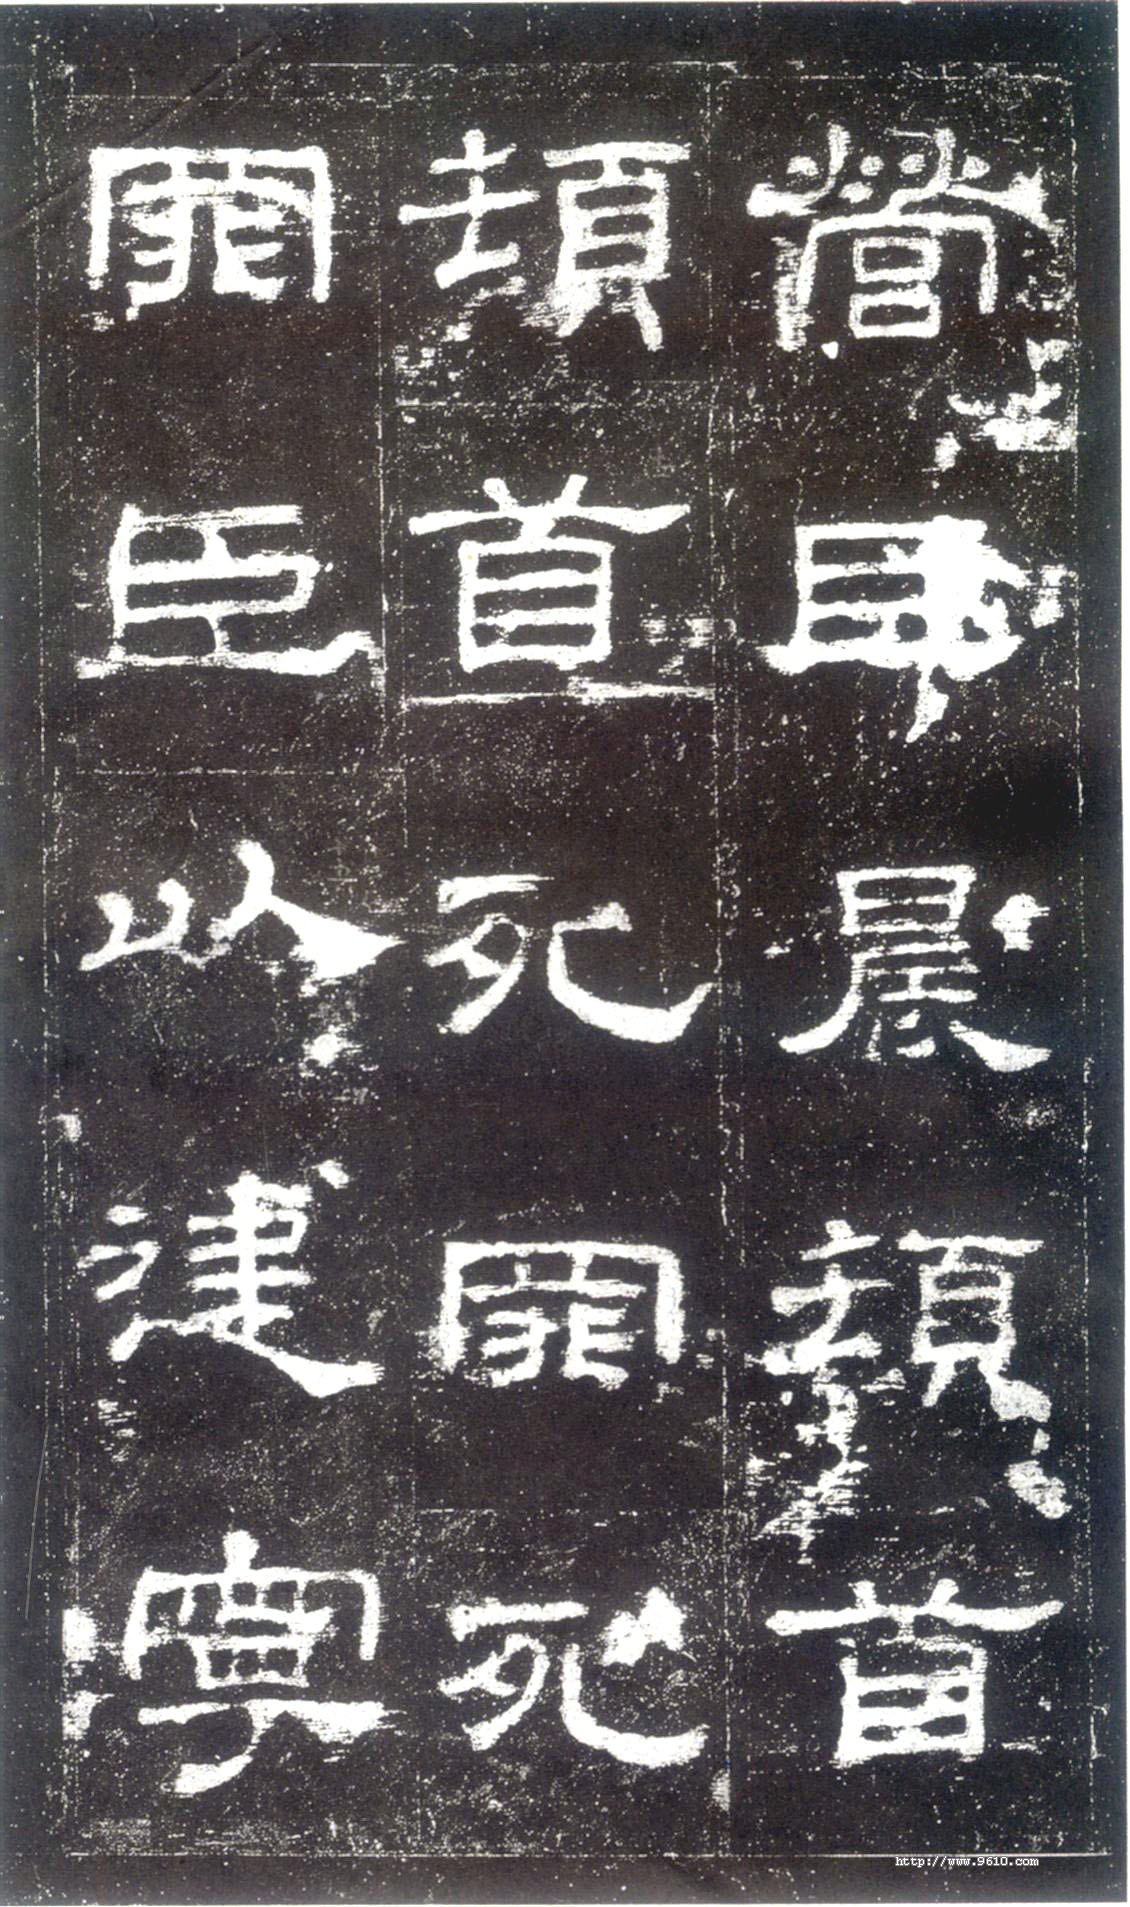 營臣晨頓首
頓首死罪死
罪臣以建寧
http://www.9610.com